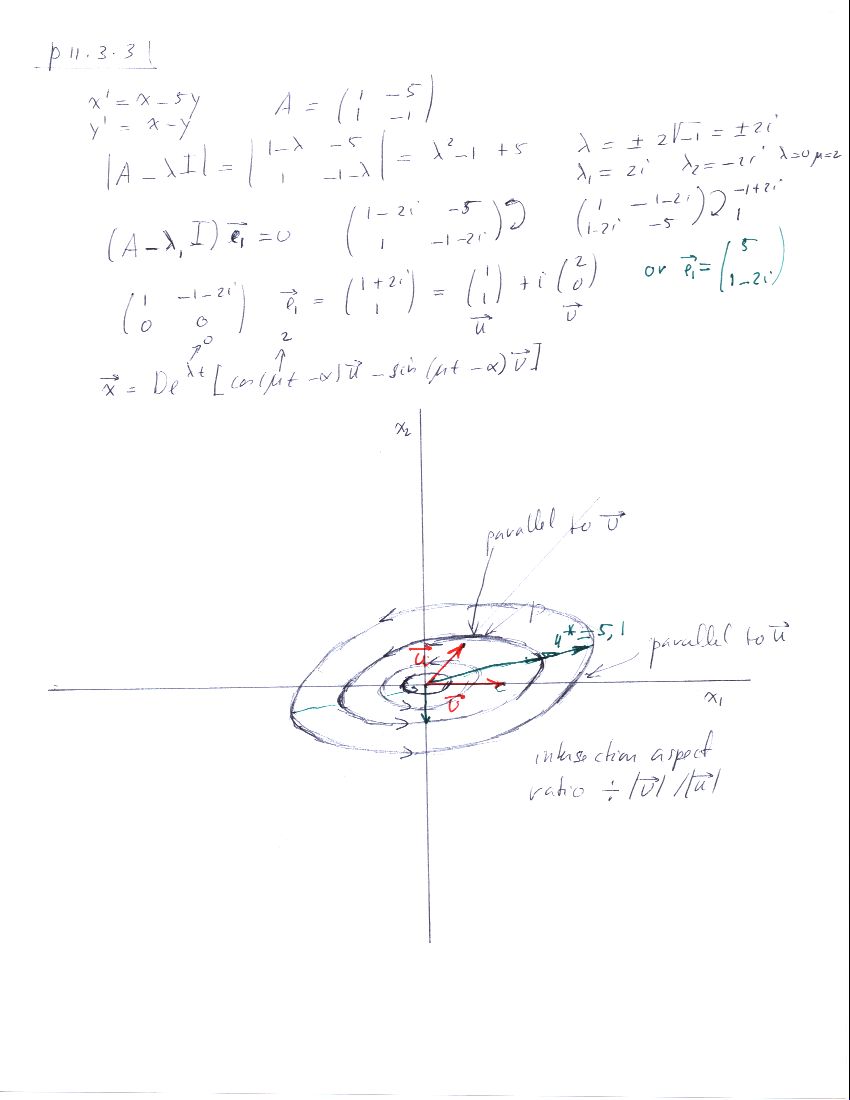 p 11.3.31
x' = x - 5y
y' = x - y
A = (1 -5; 1 -1)
|A - λI| = |1-λ -5; 1 -1-λ| = λ² - 1 + 5
λ = ± 2√-1 = ± 2i
λ₁ = 2i λ₂ = -2i λ=0 μ=2
(A - λ₁I) e⃗₁ = 0
(1-2i -5; 1 -1-2i)
(1 -1-2i; 1-2i -5) -1+2i 1
(1 -1-2i; 0 0)
e⃗₁ = (1+2i; 1) = (1; 1) + i (2; 0)
u⃗ v⃗
or e⃗₁ = (5; 1-2i)
0 2
x⃗ = De^λt [cos(μt - α) u⃗ - sin(μt - α) v⃗]
x₂
parallel to v⃗
u* = 5, 1
parallel to u⃗
u⃗
v⃗
x₁
intersection aspect
ratio ÷ |v⃗| / |u⃗|